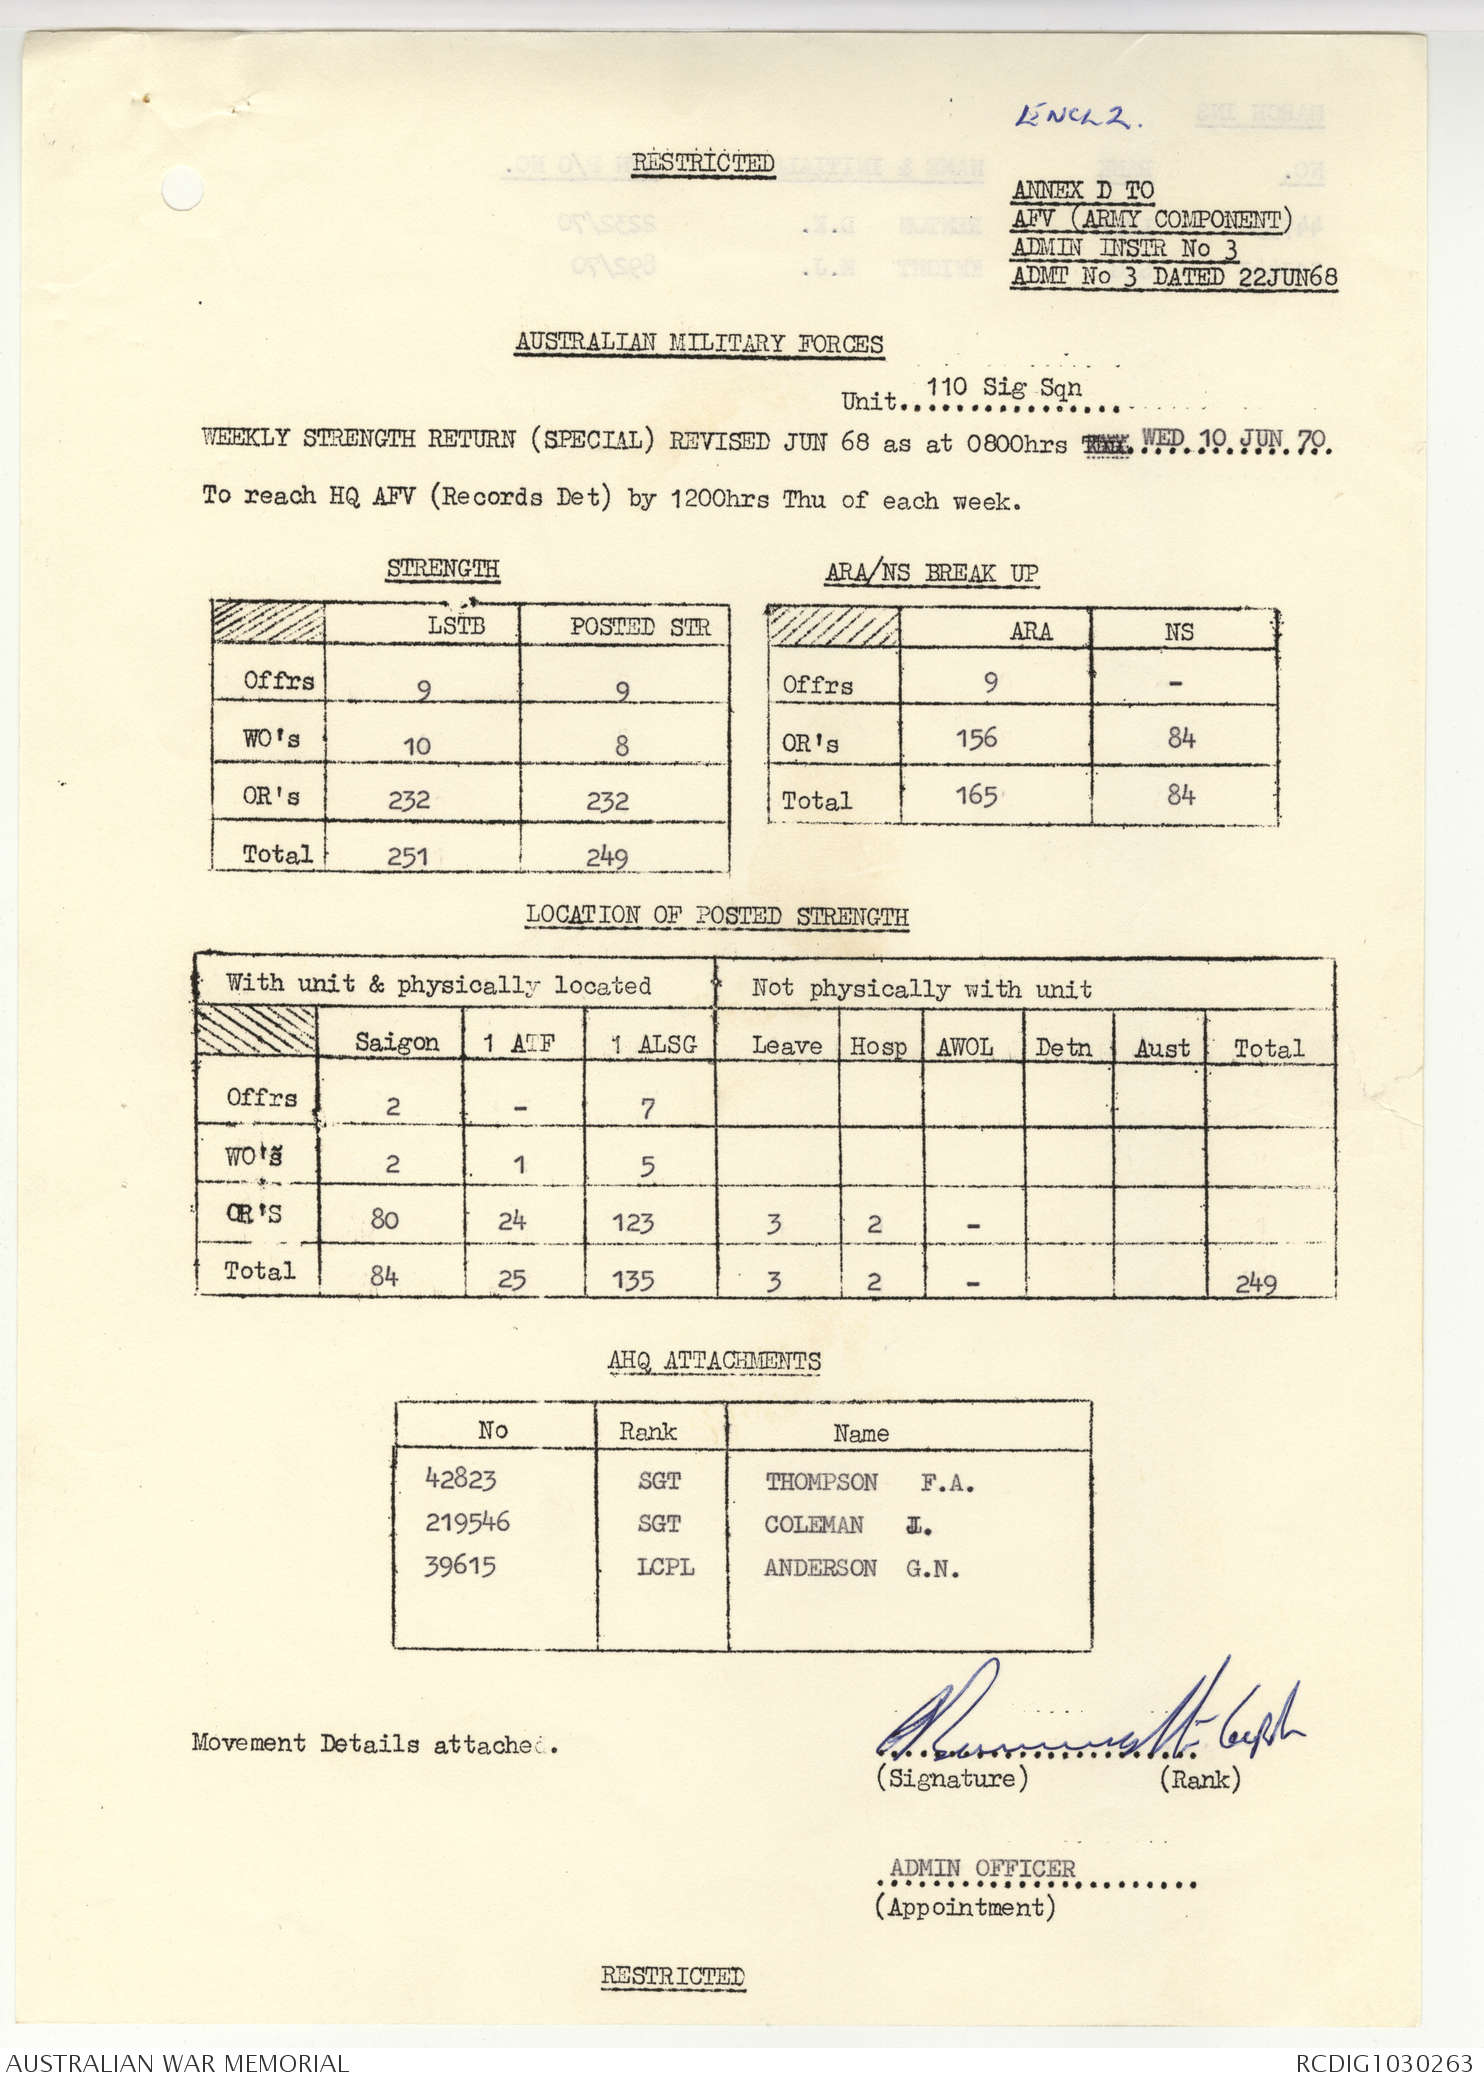 ENCL 2.
RESTRICTED
ANNEX D TO
AFV (ARMY COMPONENT)
ADMIN INSTR No 3
ADMT No 3 DATED 22JUN68
AUSTRALIAN MILITARY FORCES
Unit 110 Sig Sqn
WEEKLY STRENGTH RETURN (SPECIAL) REVISED JUN 68 as at 0800hrs WED 10 JUN 70
To reach HQ AFV (Records Det) by 1200hrs Thu of each week.
STRENGTH
LSTB POSTED STR
Offrs 9 9
WO's 10 8
OR's 232 232
Total 251 249
ARA/NS BREAK UP
ARA NS
Offrs 9 -
OR's 156 84
Total 165 84
LOCATION OF POSTED STRENGTH
With unit & physically located Not physically with unit
Saigon 1 ATF 1 ALSG Leave Hosp AWOL Detn Aust Total
Offrs 2 - 7
WO's 2 1 5
OR'S 80 24 123 3 2 -
Total 84 25 135 3 2 - 249
AHQ ATTACHMENTS
No Rank Name
42823 SGT THOMPSON F.A.
219546 SGT COLEMAN
39615 LCPL ANDERSON G.N.
Movement Details attached.
Capt
(Signature) (Rank)
ADMIN OFFICER
(Appointment)
RESTRICTED
AUSTRALIAN WAR MEMORIAL RCDIG1030263